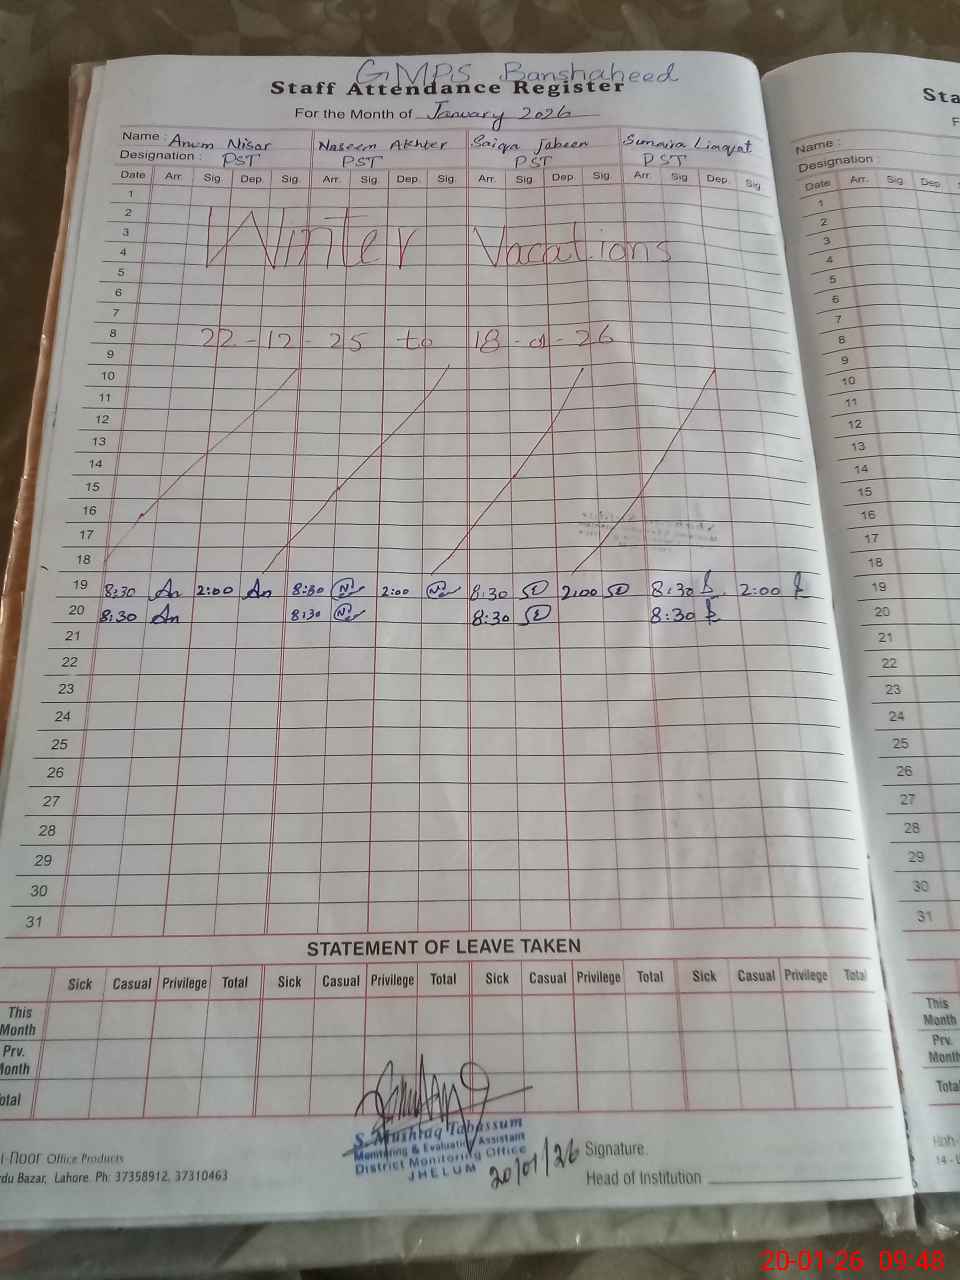 GMPS Banshaheed
Staff Attendance Register
For the Month of January 2026
Name : Anum Nisar Naseem Akhter Saiqa Jabeen Sumaira Liaqat
Designation : PST PST PST PST
Date Arr. Sig. Dep. Sig. Arr. Sig. Dep. Sig. Arr. Sig. Dep. Sig. Arr. Sig. Dep. Sig.
1
2
3 Winter Vacations
4
5
6
7
8 22-12-25 to 18-01-26
9
10
11
12
13
14
15
16
17
18
19 8:30 An 2:00 An 8:30 2:00 8:30 2:00 8:30 2:00
20 8:30 An 8:30 8:30 8:30
21
22
23
24
25
26
27
28
29
30
31
STATEMENT OF LEAVE TAKEN
Sick Casual Privilege Total Sick Casual Privilege Total Sick Casual Privilege Total Sick Casual Privilege Total
This Month
Prv. Month
otal
S. Mushtaq Tabassum
Monitoring & Evaluation Assistant
District Monitoring Office
JHELUM
20/01/26
Signature.
Head of Institution
l-noor Office Products
du Bazar, Lahore. Ph: 37358912, 37310463
Sta
F
Name :
Designation :
Date Arr. Sig. Dep. S
1
2
3
4
5
6
7
8
9
10
11
12
13
14
15
16
17
18
19
20
21
22
23
24
25
26
27
28
29
30
31
This Month
Prv. Month
Total
14 -
20-01-26 09:48